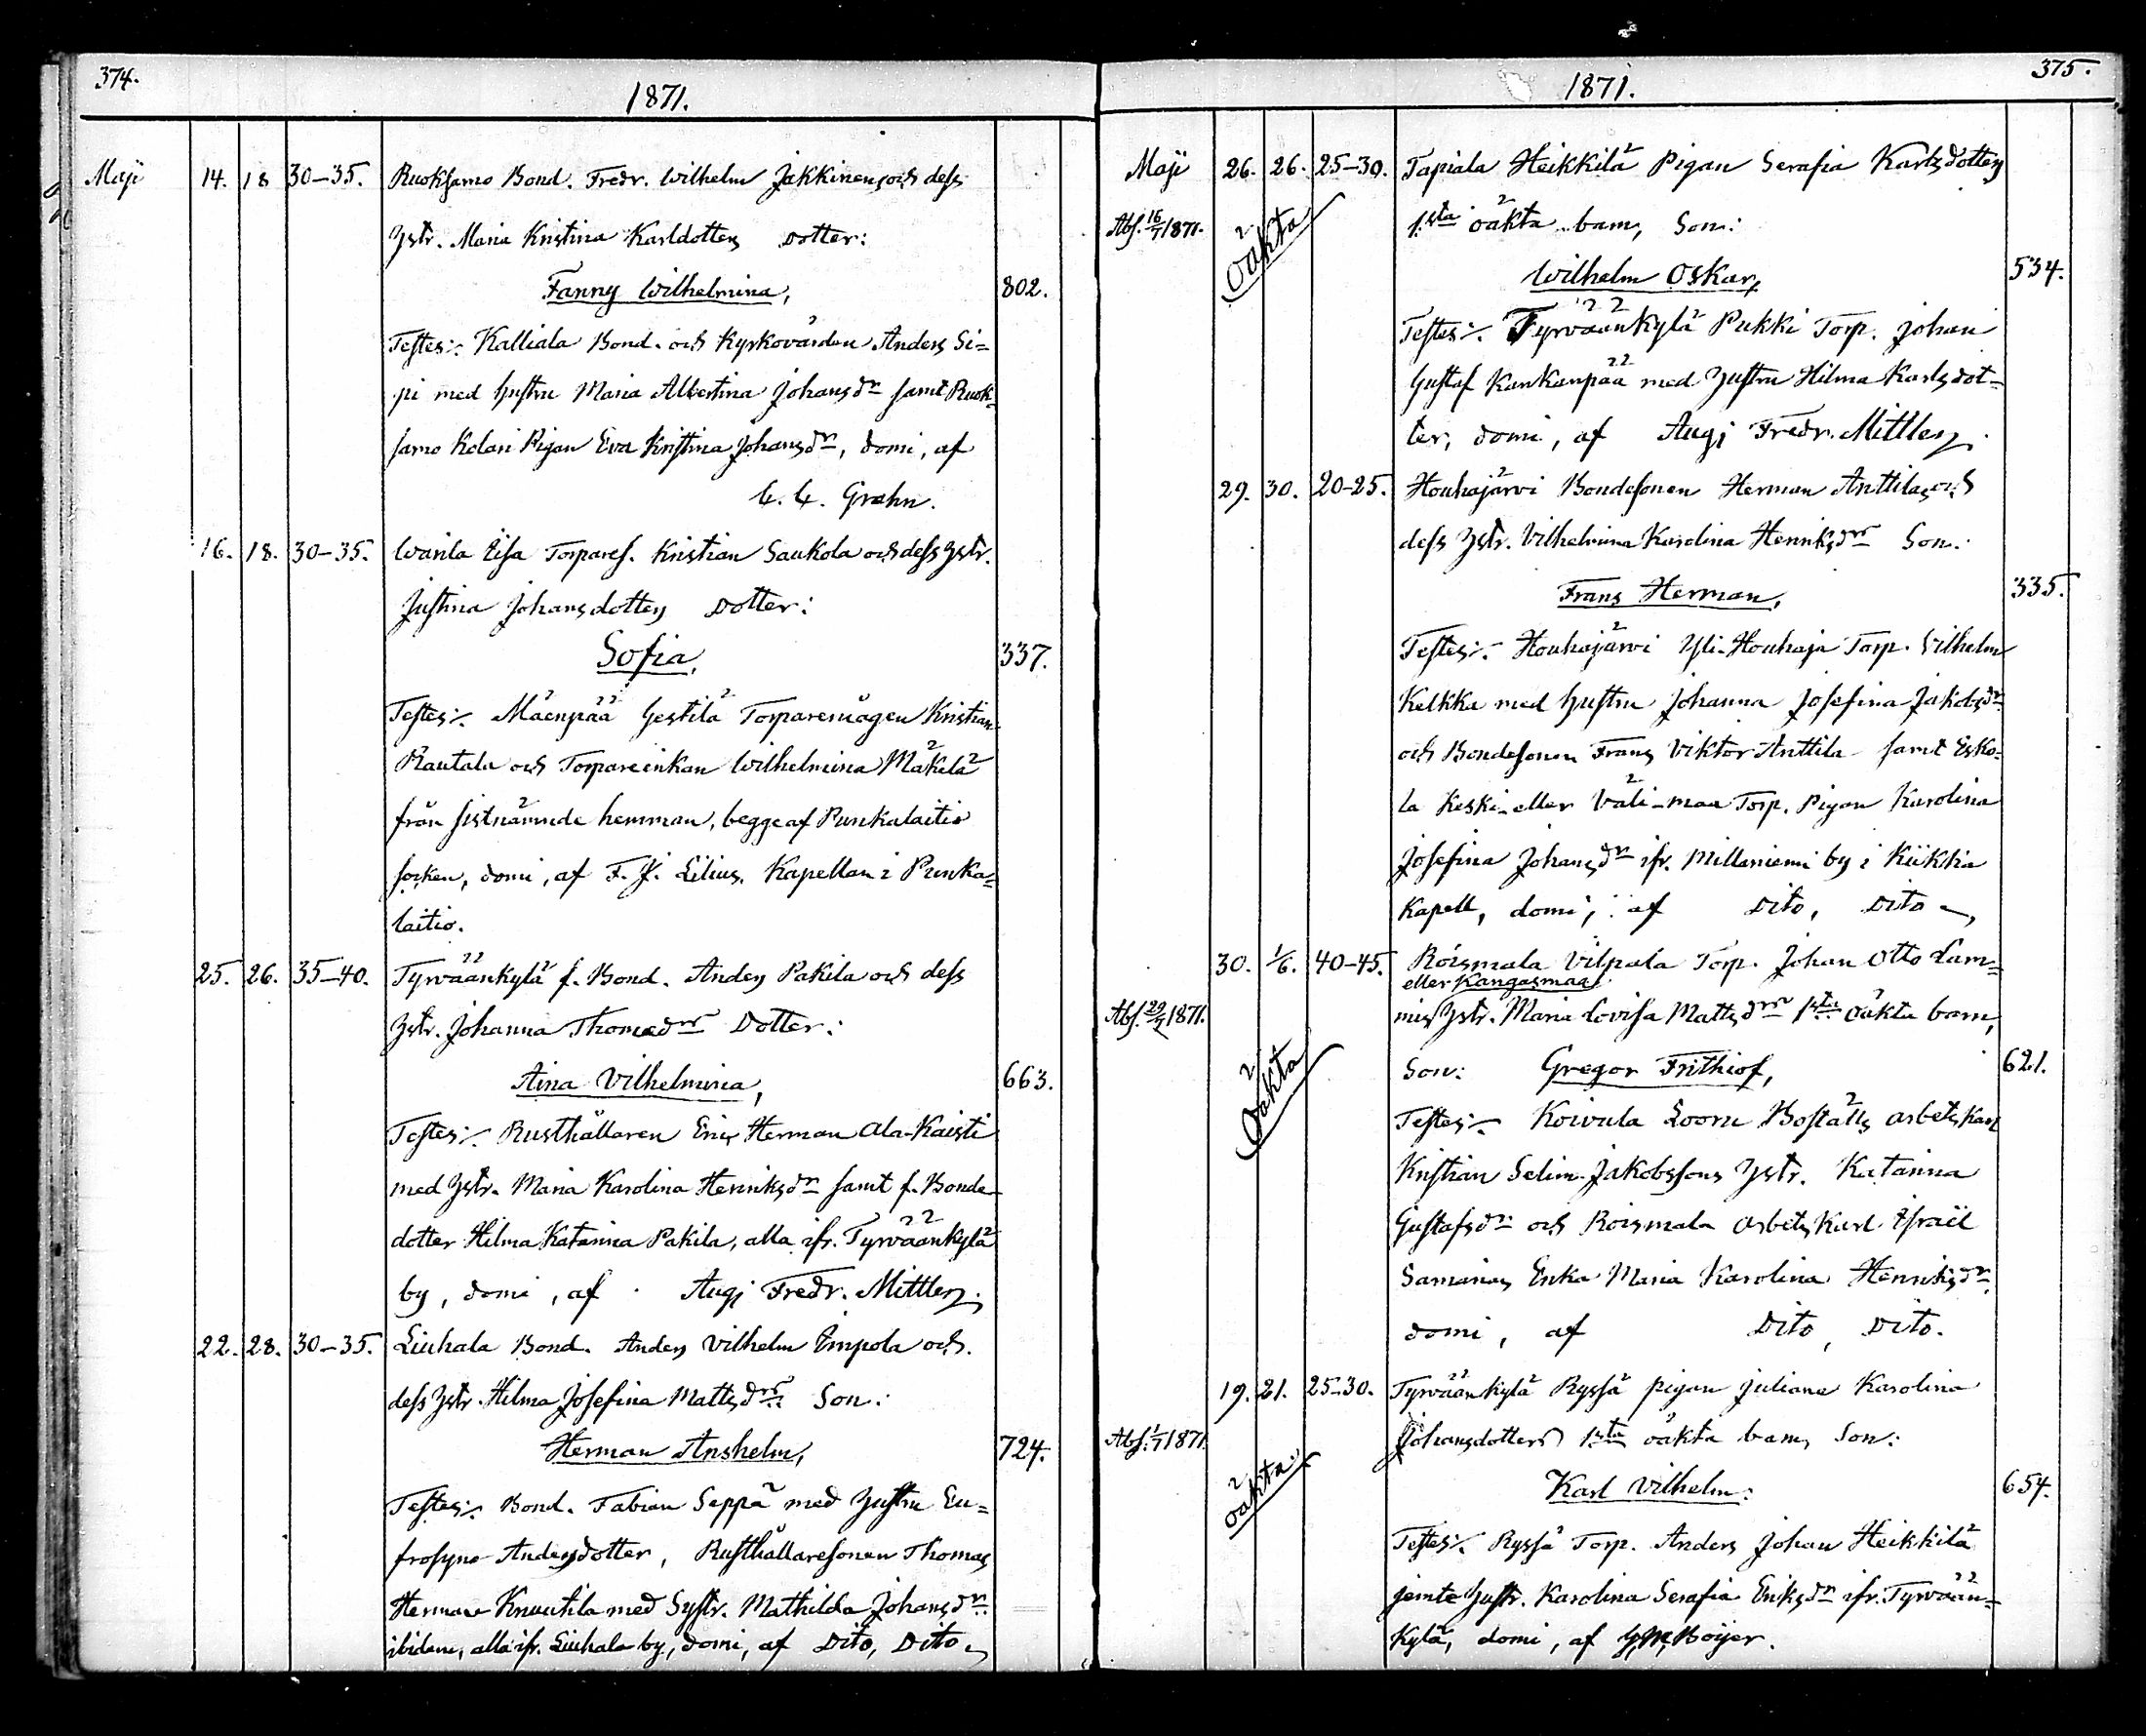 374.
1871.
Maji 14. 18 30–35. Ruoksamo Bond. Fredr. Wilhelm Jakkinens och dess
Hstr. Maria Kristina Karldotters Dotter:
Fanny Wilhelmina, 802.
Testes:/. Kalliala Bond. och Kyrkovärden Anders Si=
pi med hustru Maria Albertina Johansdr samt Ruok=
samo Kolari Pigan Eva Kristina Johansdr, domi, af
C. C. Grahn.
16. 18. 30–35. Warila Eisa Torpares. Kristian Saukola och dess Hstr.
Justina Johansdotters Dotter:
Sofia, 337.
Testes:/. Mäenpää Gestilä Torparemågen Kristian
Rautala och Torpareenkan Wilhelmina Mäkelä
från sistnämnde hemman, begge af Punkalaitio
socken, domi, af F. J. Lilius, Kapellan i Punka=
laitio.
25. 26. 35–40. Tyrväänkylä f. Bond. Anders Pakila och dess
Hstr. Johanna Thomasdrs Dotter:
Aina Vilhelmina, 663.
Testes:/. Rusthållaren Eric Herman Ala-Kaisti
med Hstr. Maria Karolina Henriksdr samt f. Bonde-
dotter Hilma Katarina Pakila, alla ifr. Tyrväänkylä
by, domi, af Augi Fredr. Mittler.
22. 28. 30–35. Liuhala Bond. Anders Vilhelm Empola och
dess Hstr. Hilma Josefina Mattsdrs Son:
Herman Anshelm, 724.
Testes:/. Bond. Fabian Seppä med Hustru Eu=
frosyne Andersdotter, Rusthållaresonen Thomas
Herman Knuutila med Systr. Mathilda Johansdr
ibidem, alla ifr. Liuhala by, domi, af Dito, Dito
375.
1871.
Maji 26. 26. 25–30. Tapiala Heikkilä Pigan Serafia Karlsdotters
Abs. 16/7 1871. oäkta 1sta oäkta barn, Son:
Wilhelm Oskar, 534.
Testes:/. Tyrväänkylä Pukki Torp. Johan
Gustaf Kankanpää med Hustru Hilma Karlsdot=
ter, domi, af Augi Fredr. Mittler.
29. 30. 20–25. Houhajärvi Bondesonen Herman Anttilas och
dess Hstr. Vilhelmina Karolina Henriksdrs Son:
Frans Herman, 335.
Testes:/. Houhajärvi Yli-Houhaja Torp. Vilhelm
Kelkka med hustru Johanna Josefina Jakobsdr
och Bondesonen Frans Viktor Anttila samt Esko-
la Keski- eller Väli-maa Torp. Pigan Karolina
Josefina Johansdr ifr. Millaniemi by i Kiikka
Kapell, domi, af Dito, Dito
30. 1/6. 40–45. Roismala Vilpala Torp. Johan Otto Lam=
eller Kangasmaa
Abs. 29/7 1871. mis Hstr. Maria Lovisa Mattsdrs 1sta oäkta barn,
oäkta Son: Gregor Frithiof, 621.
Testes:/. Koivula Looru Boställs arbets Karl
Kristian Selim Jakobssons Hstr. Katarina
Gustafsdr och Roismala arbets Karl Israël
Samanas Enka Maria Karolina Henriksdr,
domi, af Dito, Dito.
19. 21. 25–30. Tyrväänkylä Ryssä pigan Juliana Karolina
Abs. 1/7 1871 Johansdotters 1sta oäkta barn, Son:
oäkta Karl Vilhelm: 654.
Testes:/. Ryssä Torp. Anders Johan Heikkilä
jemte hustr. Karolina Serafia Eriksdr ifr. Tyrvään=
kylä, domi, af Boijer.